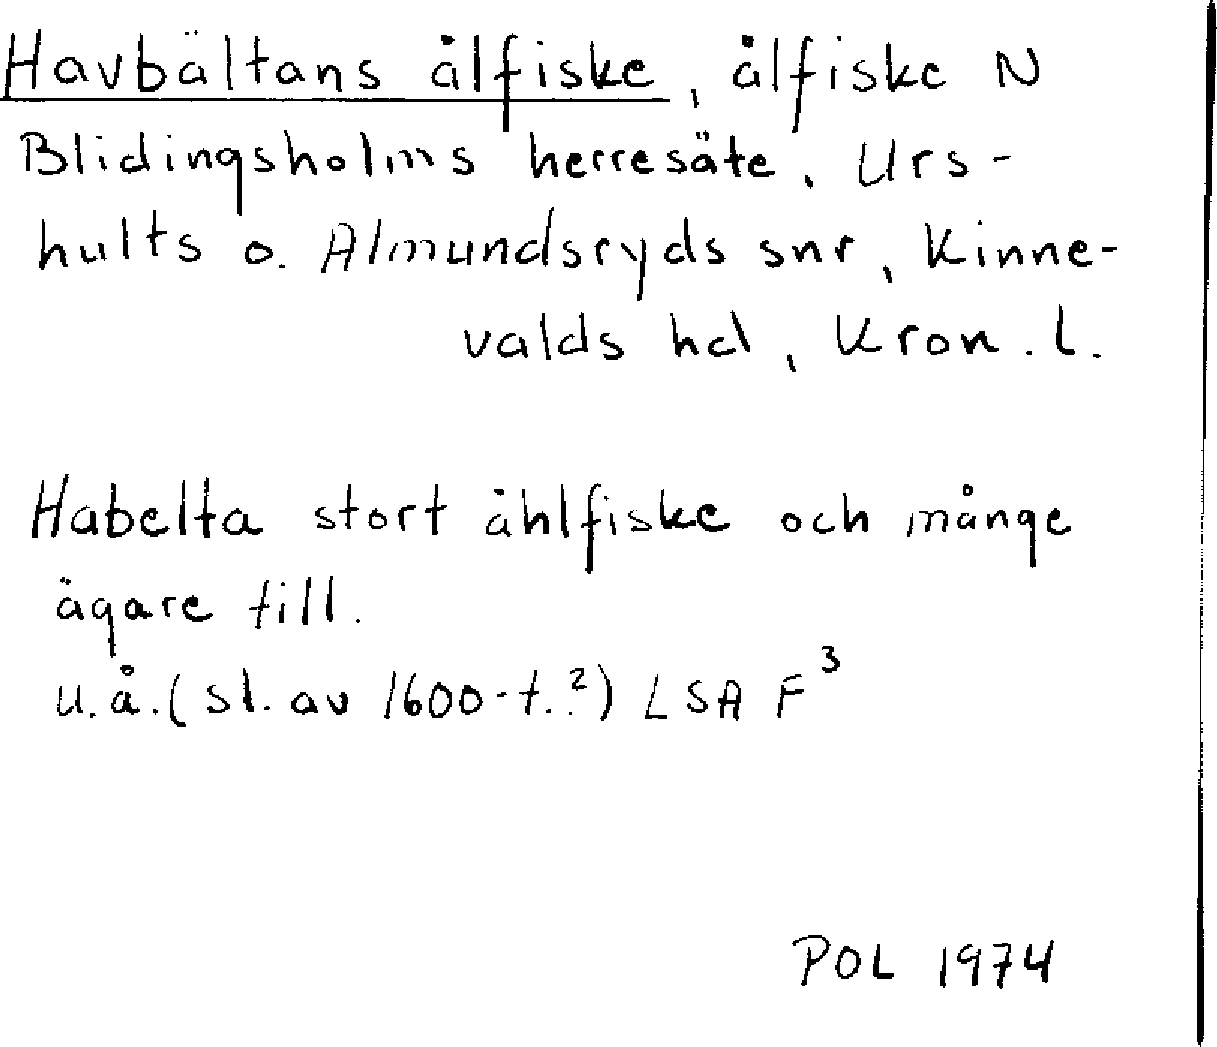 Havbältans ålfiske, ålfiske N
Blidingsholms herresäte, Urs-
hults o. Almundsryds snr, Kinne-
valds hd, Kron. l.
Habelta stort åhlfiske och månge
ägare till.
u.å. (sl. av 1600-t.?) LSA F³
POL 1974